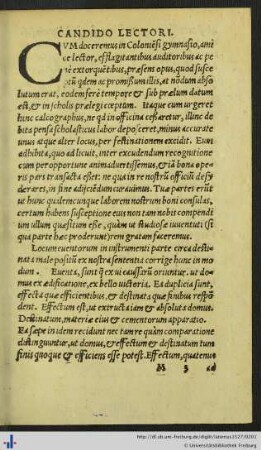 CANDIDO LECTORI.
CVM doceremus in Coloniẽsi gymnasio, ami
ce lector, efflagitantibus auditoribus ac pe
nè extorquẽtibus, præsens opus, quod susce
ptũ qdem ac promissum illis, at nõdum abso
lutum erat, eodem ferè tempore & sub prælum datum
est, & in scholis prælegi cœptum. Itaque cum urgeret
hinc calcographus, ne qd in officina cessaretur, illinc de
bita pensa scholasticus labor deposceret, minus accuratè
unus atque alter locus, per festinationem excidit. Eum
adhibita, quo ad licuit, inter excudendum recognitione
cum peropportune animaduertissemus, & iã bona ope
ris pars transacta esset: ne qua in re nostrũ officiũ de sy
deraret, in fine adijciẽdum curauimus. Tuæ partes erũt
ut hunc qualemcunque laborem nostrum boni consulas,
certum habens susceptione eius non tam nobis compendij
um ullum quæsitum esse, quàm ut studiosæ iuuentuti (si
qua parte hac prodesset) rem gratam faceremus.
Locum euentorum in instrumenti parte circa desti
nata malè positũ ex nostra sententia corrige hunc in mo
dum. Euenta, sunt q̃ ex ui caussarũ oriuntur. ut do
mus ex ædificatione, ex bello uictoria. Ea duplicia sunt,
effecta quæ efficientibus, & destinata quæ finibus respõ
dent. Effectum est, ut extructa iam & absoluta domus.
Destinatum, materiæ eius & cementorum apparatio.
Ea sæpe in idem recidunt nec tam re quàm comparatione
distinguuntur, ut domus, & effectum & destinatum tum
finis quoque & efficiens esse potest. Effectum, quatenus
M 3 ad
http://dl.ub.uni-freiburg.de/diglit/latomus1527/0201
© Universitätsbibliothek Freiburg